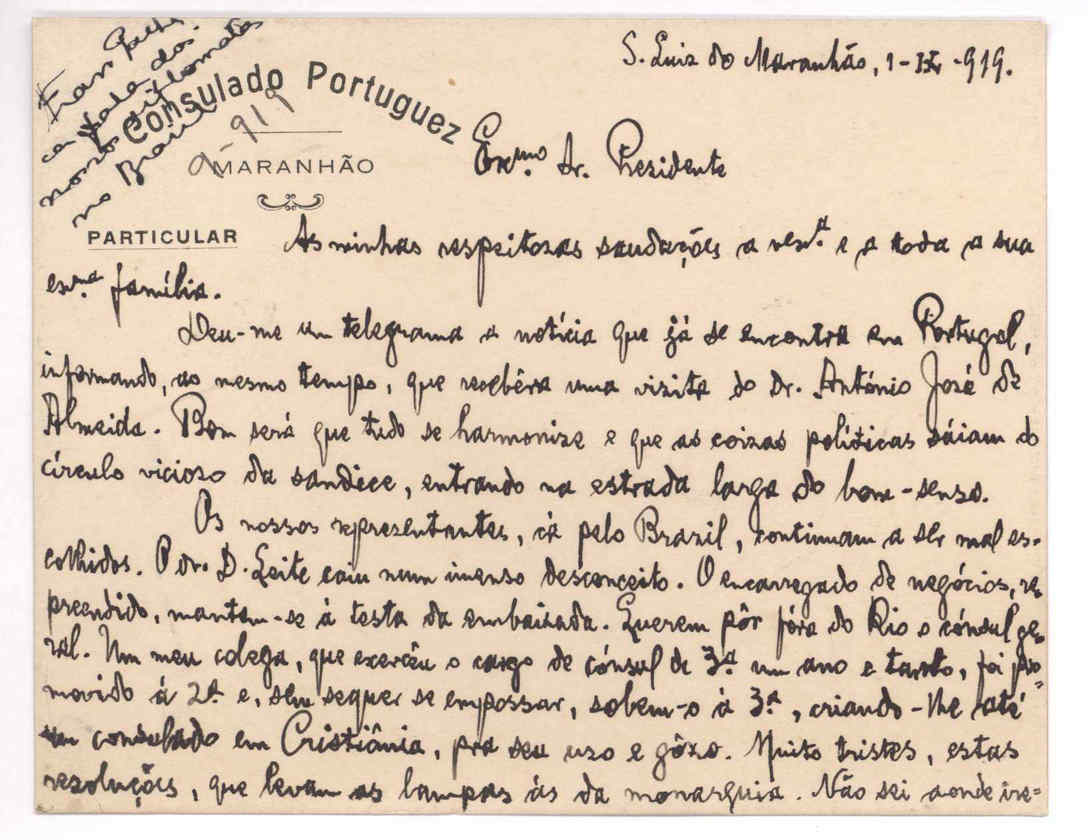 Fran Pacheco
fala dos
nossos diplomatas
no Brazil
919
Consulado Portuguez
MARANHÃO
PARTICULAR
S. Luiz do Maranhão, 1-IX-919.
Exmo. Sr. Presidente
As minhas respeitozas saudações a vexª. e a toda a sua
exma. família.
Deu-me um telegrama a notícia que já se encontra em Portugal,
informando, ao mesmo tempo, que recebêra uma vizita do Dr. António José de
Almeida. Bom será que tudo se harmonize e que as coizas políticas sáiam do
círculo vicioso da sandice, entrando na estrada larga do bom-senso.
Os nossos representantes, cá pelo Brazil, continuam a ser mal es-
colhidos. O dr. D. Leite caiu num imenso desconceito. O encarregado de negócios, re-
preendido, mantem-se à testa da embaixada. Querem pôr fóra do Rio o cônsul ge-
ral. Um meu colega, que exerceu o cargo de cónsul de 3.ª um ano e tanto, foi pro-
movido à 2.ª e, sem sequer se empossar, sobem-o à 3.ª, criando-lhe até
um consulado em Cristiânia, pra seu uzo e gôzo. Muito tristes, estas
rezoluções, que levam as lampas às da monarquia. Não sei aonde ire-